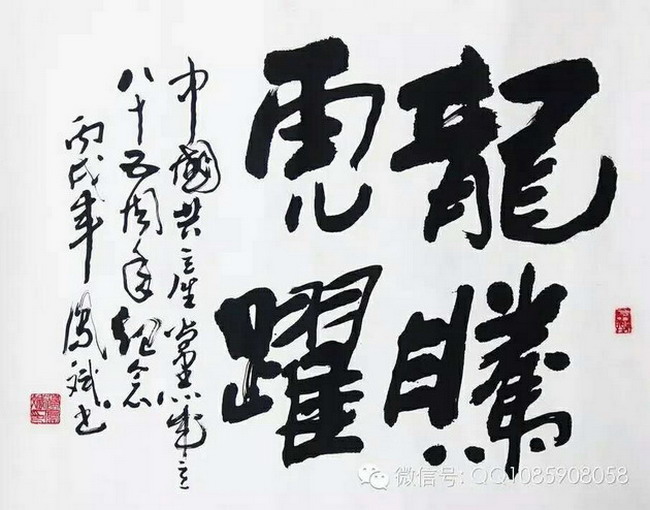 龍騰
虎躍
中國共产黨成立
八十五周年紀念
丙戌年 鳳斌书
微信号: QQ1085908058